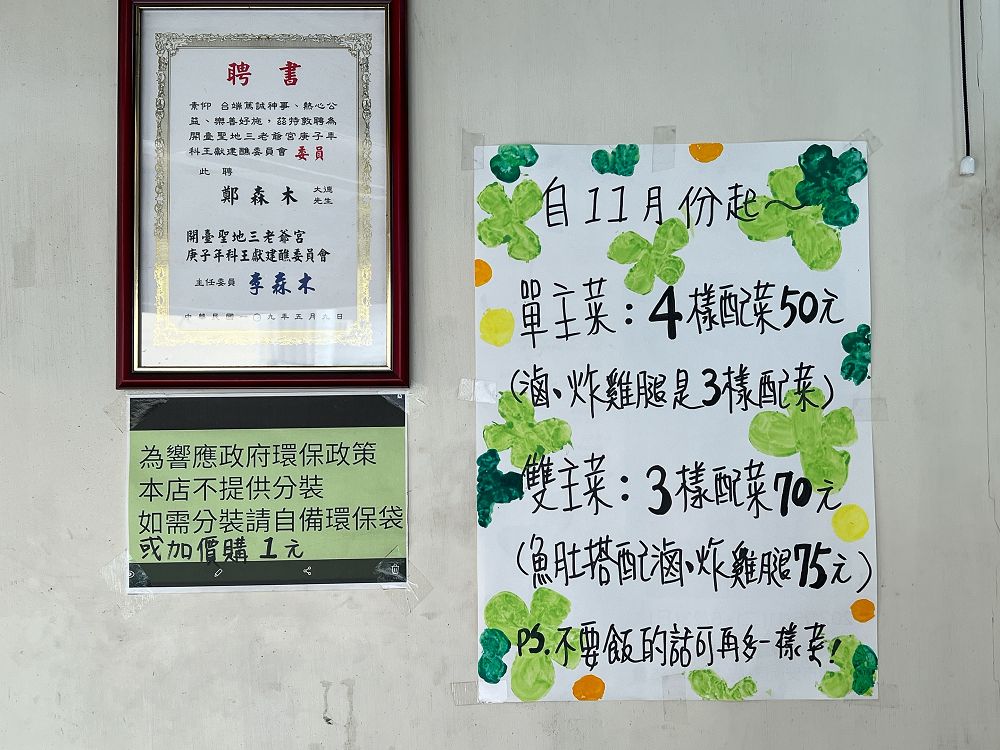 聘書
素仰 台端篤誠神事、熱心公
益、樂善好施，茲特敦聘為
開臺聖地三老爺宮庚子年
科王獻建醮委員會 委員
此聘
鄭森木 大德
先生
開臺聖地三老爺宮
庚子年科王獻建醮委員會
主任委員 李森木
中華民國一〇九年五月九日
為響應政府環保政策
本店不提供分裝
如需分裝請自備環保袋
或加價購1元
自11月份起～
單主菜：4樣配菜50元
(滷、炸雞腿是3樣配菜)
雙主菜：3樣配菜70元
(魚肚搭配滷、炸雞腿75元)
PS.不要飯的話可再多一樣菜!